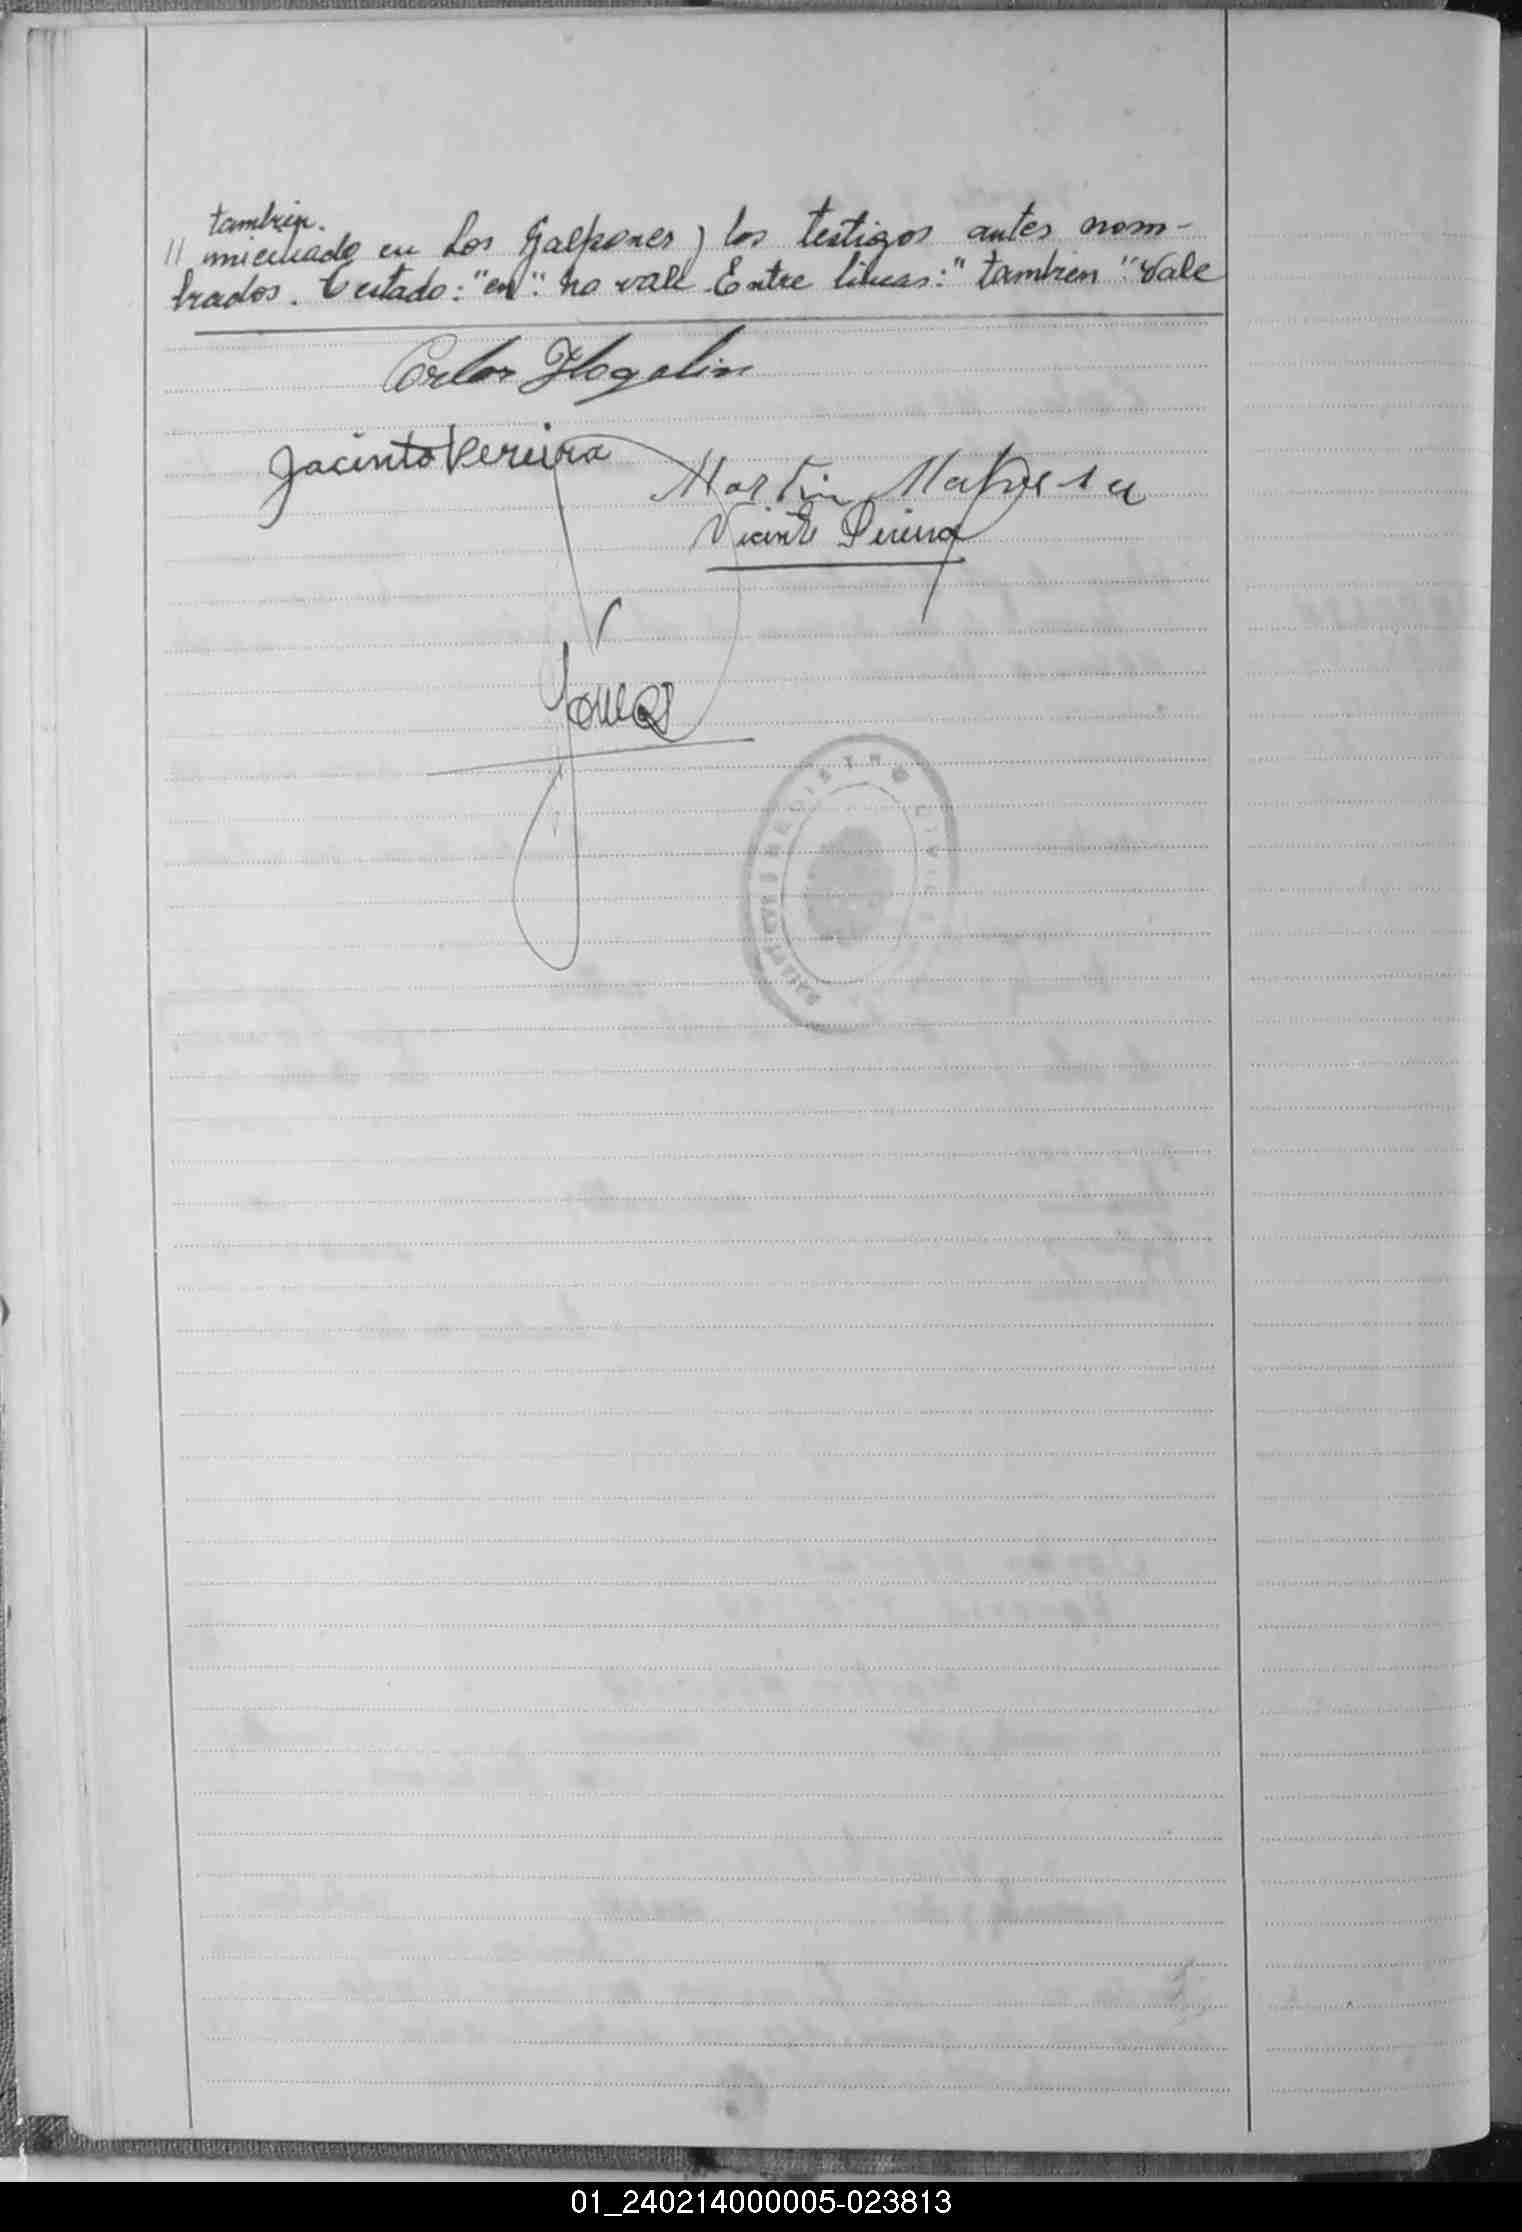 tambien.
// miciliado en Los Galpones y los testigos antes nom-
brados. Testado: "en": no vale. Entre lineas: "tambien": Vale
Carlos Mogolin
Jacinto Pereira
Martin
Vicente Pereira
REGISTRO CIVIL
01_240214000005-023813